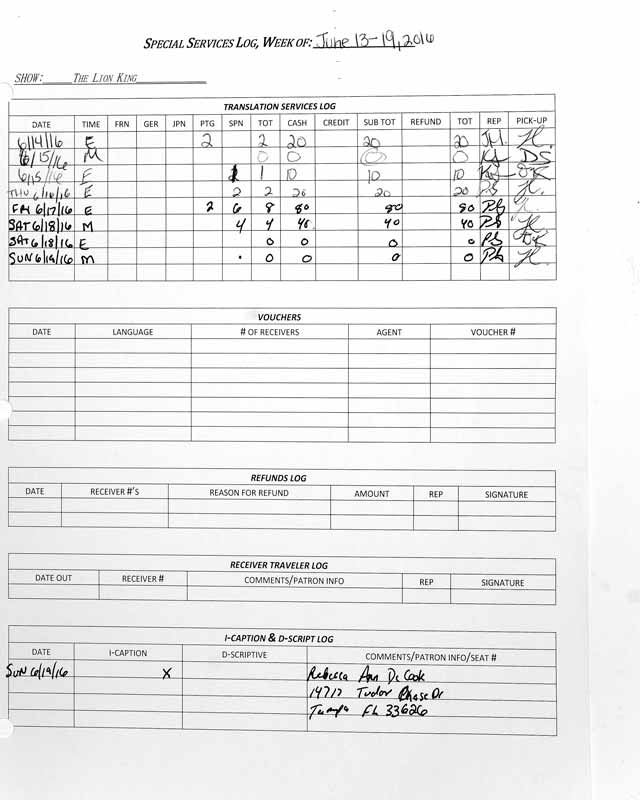 SPECIAL SERVICES LOG, WEEK OF: June 13-19, 2016
SHOW: THE LION KING
TRANSLATION SERVICES LOG
DATE TIME FRN GER JPN PTG SPN TOT CASH CREDIT SUB TOT REFUND TOT REP PICK-UP
6/14/16 E 2 2 20 20 20 JM
6/15/16 M 0 0 0 0 DS
6/15/16 E 1 1 10 10 10
THU 6/16/16 E 2 2 20 20 20 PS
FRI 6/17/16 E 2 6 8 80 80 80 PS
SAT 6/18/16 M 4 4 40 40 40 PS
SAT 6/18/16 E 0 0 0 0 PS
SUN 6/19/16 M 0 0 0 0 PS
VOUCHERS
DATE LANGUAGE # OF RECEIVERS AGENT VOUCHER #
REFUNDS LOG
DATE RECEIVER #'S REASON FOR REFUND AMOUNT REP SIGNATURE
RECEIVER TRAVELER LOG
DATE OUT RECEIVER # COMMENTS/PATRON INFO REP SIGNATURE
I-CAPTION & D-SCRIPT LOG
DATE I-CAPTION D-SCRIPTIVE COMMENTS/PATRON INFO/SEAT #
SUN 6/19/16 X Rebecca Ann De Cook
14717 Tudor Chase Dr
Tampa FL 33626